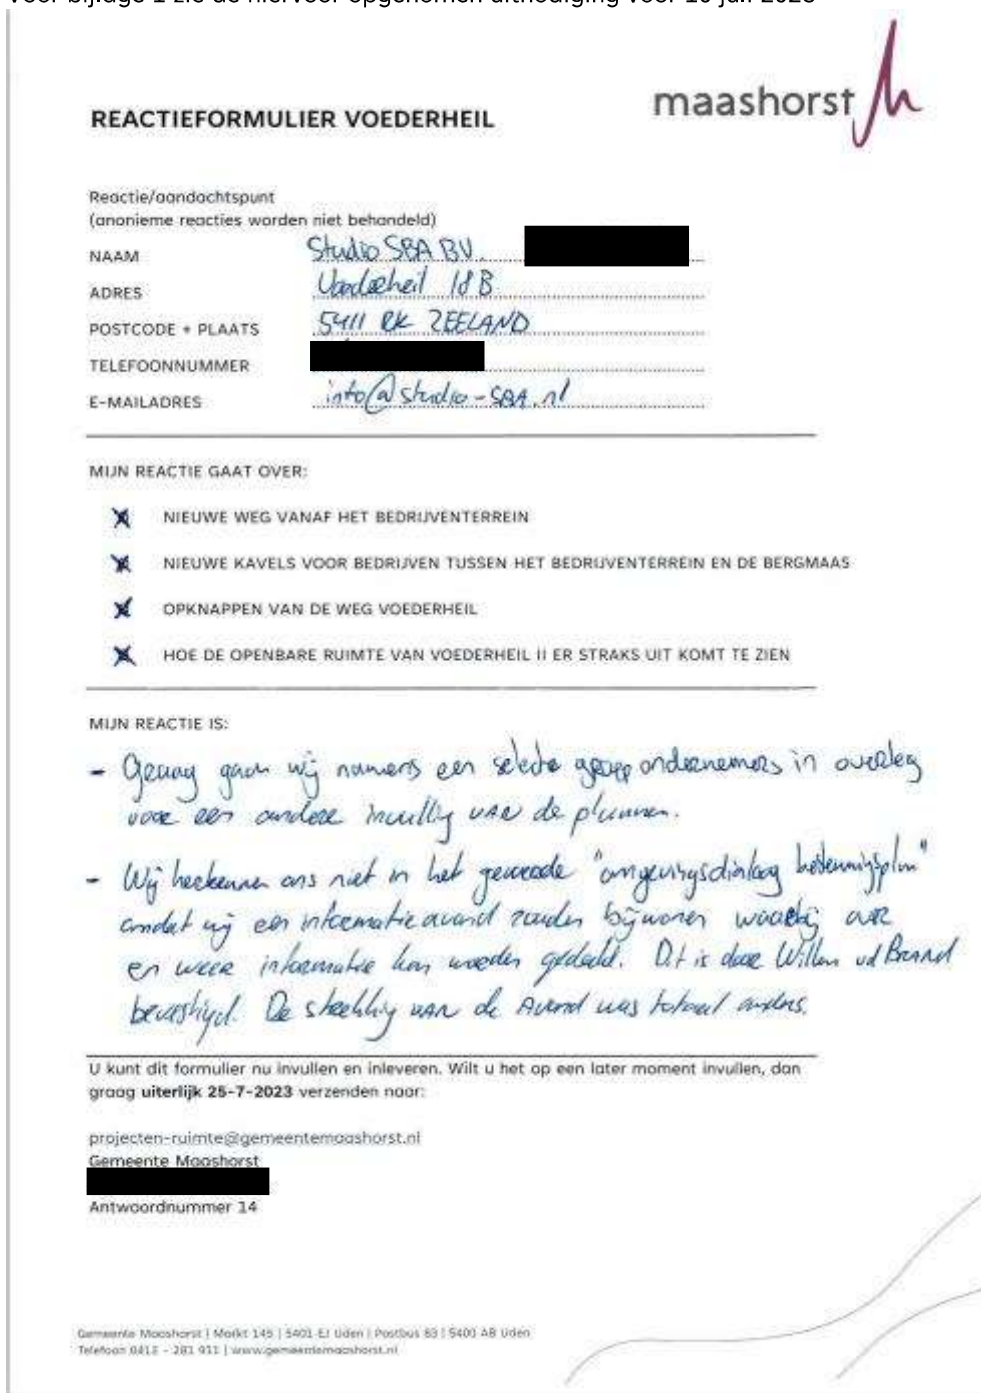 Voor bijlage 1 zie de hiervoor opgenomen uitnodiging voor 10 juli 2023
maashorst
REACTIEFORMULIER VOEDERHEIL
Reactie/aandachtspunt
(anonieme reacties worden niet behandeld)
NAAM Studio SBA BV.
ADRES Voederheil 18 B
POSTCODE + PLAATS 5411 RK ZEELAND
TELEFOONNUMMER
E-MAILADRES info@studio-SBA.nl
MIJN REACTIE GAAT OVER:
NIEUWE WEG VANAF HET BEDRIJVENTERREIN
NIEUWE KAVELS VOOR BEDRIJVEN TUSSEN HET BEDRIJVENTERREIN EN DE BERGMAAS
OPKNAPPEN VAN DE WEG VOEDERHEIL
HOE DE OPENBARE RUIMTE VAN VOEDERHEIL II ER STRAKS UIT KOMT TE ZIEN
MIJN REACTIE IS:
- Graag gaan wij namens een selecte groep ondernemers in overleg
voor een andere invulling van de plannen.
- Wij herkennen ons niet in het gevoerde "omgevingsdialoog bestemmingsplan"
omdat wij een informatieavond zouden bijwonen waarbij over
en weer informatie kon worden gedeeld. Dit is door Willem vd Brand
bevestigd. De strekking van de Avond was totaal anders.
U kunt dit formulier nu invullen en inleveren. Wilt u het op een later moment invullen, dan
graag uiterlijk 25-7-2023 verzenden naar:
projecten-ruimte@gemeentemaashorst.nl
Gemeente Maashorst
Antwoordnummer 14
Gemeente Maashorst | Markt 145 | 5401 EJ Uden | Postbus 83 | 5400 AB Uden
Telefoon 0413 - 281 911 | www.gemeentemaashorst.nl